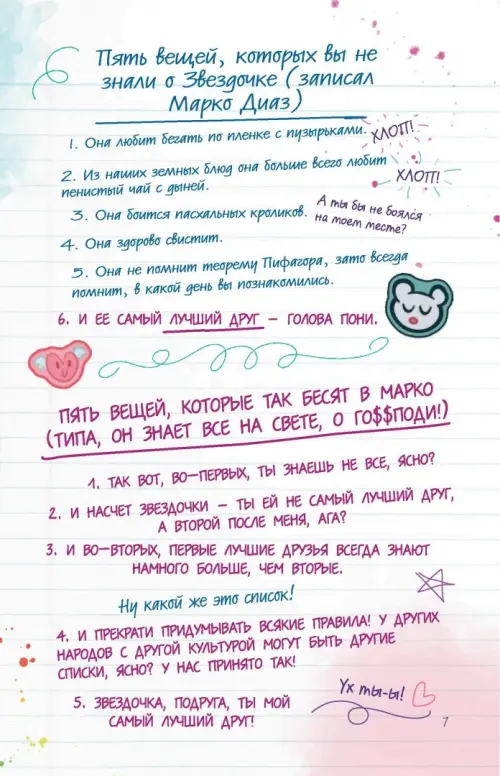 Пять вещей, которых вы не
знали о Звездочке (записал
Марко Диаз)
1. Она любит бегать по пленке с пузырьками.
ХЛОП!
2. Из наших земных блюд она больше всего любит
пенистый чай с дыней.
ХЛОП!
3. Она боится пасхальных кроликов.
А ты бы не боялся
на моем месте?
4. Она здорово свистит.
5. Она не помнит теорему Пифагора, зато всегда
помнит, в какой день вы познакомились.
6. И ЕЕ САМЫЙ ЛУЧШИЙ ДРУГ – ГОЛОВА ПОНИ.
ПЯТЬ ВЕЩЕЙ, КОТОРЫЕ ТАК БЕСЯТ В МАРКО
(ТИПА, ОН ЗНАЕТ ВСЕ НА СВЕТЕ, О ГО$$ПОДИ!)
1. ТАК ВОТ, ВО-ПЕРВЫХ, ТЫ ЗНАЕШЬ НЕ ВСЕ, ЯСНО?
2. И НАСЧЕТ ЗВЕЗДОЧКИ – ТЫ ЕЙ НЕ САМЫЙ ЛУЧШИЙ ДРУГ,
А ВТОРОЙ ПОСЛЕ МЕНЯ, АГА?
3. И ВО-ВТОРЫХ, ПЕРВЫЕ ЛУЧШИЕ ДРУЗЬЯ ВСЕГДА ЗНАЮТ
НАМНОГО БОЛЬШЕ, ЧЕМ ВТОРЫЕ.
Ну какой же это список!
4. И ПРЕКРАТИ ПРИДУМЫВАТЬ ВСЯКИЕ ПРАВИЛА! У ДРУГИХ
НАРОДОВ С ДРУГОЙ КУЛЬТУРОЙ МОГУТ БЫТЬ ДРУГИЕ
СПИСКИ, ЯСНО? У НАС ПРИНЯТО ТАК!
5. ЗВЕЗДОЧКА, ПОДРУГА, ТЫ МОЙ
САМЫЙ ЛУЧШИЙ ДРУГ!
Ух ты-ы!
7